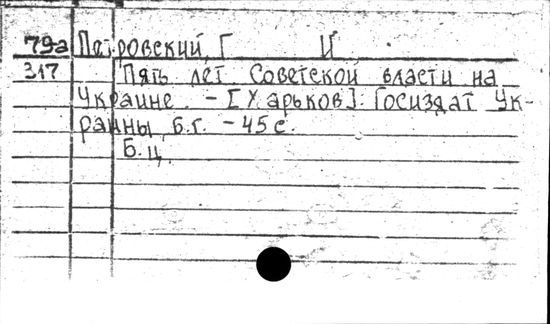 79а Петровский, Г И
317 Пять лет Советской власти на
Украине. – [Харьков]: Госиздат Ук-
раины б.г. – 45 с.
Б.ц.